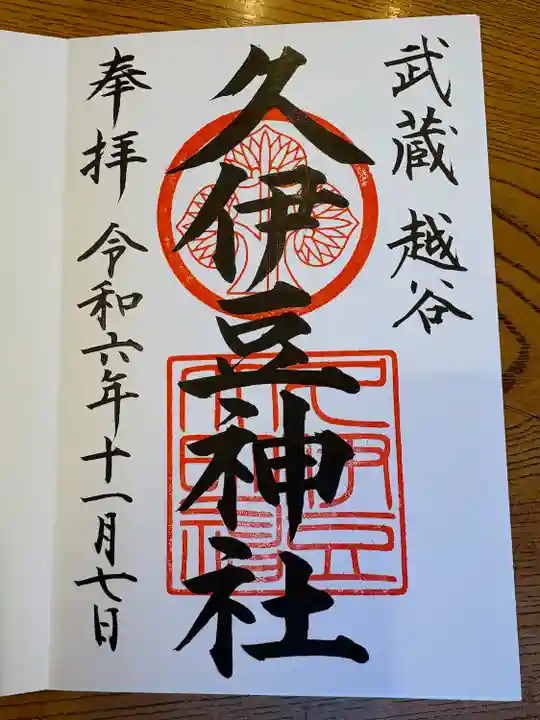 武蔵 越谷
久伊豆神社
奉拝 令和六年十一月七日